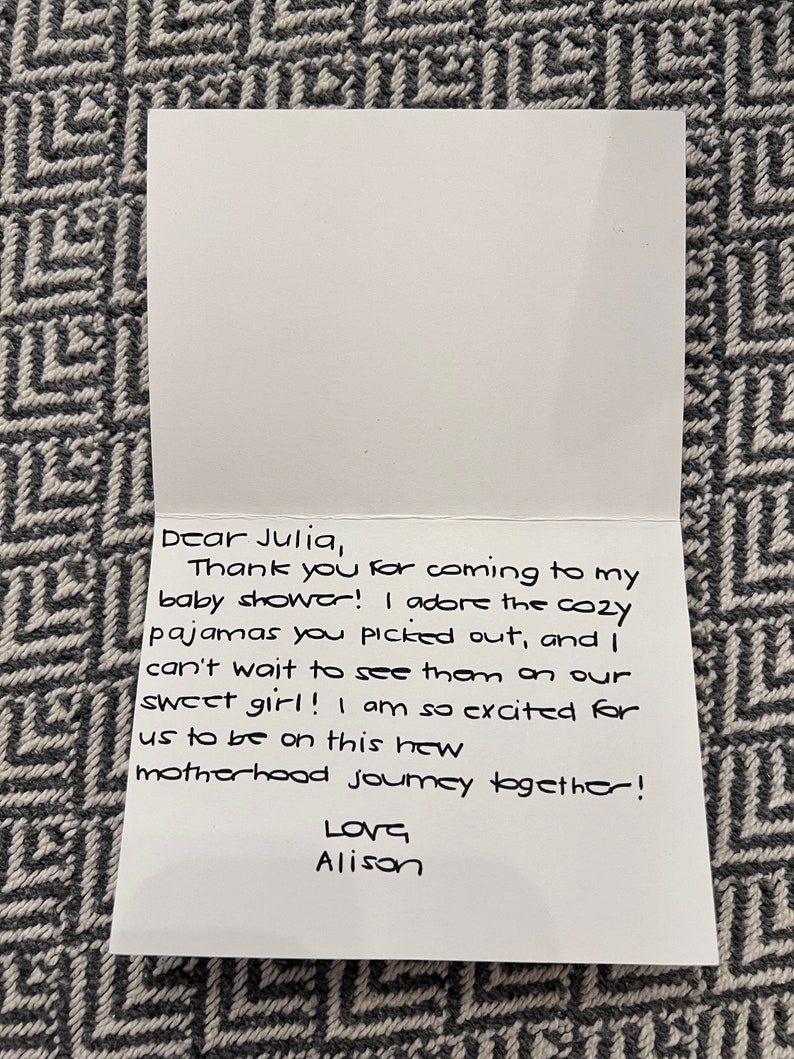 Dear Julia,
Thank you for coming to my
baby shower! I adore the cozy
pajamas you picked out, and I
can't wait to see them on our
sweet girl! I am so excited for
us to be on this new
motherhood journey together!
Love
Alison